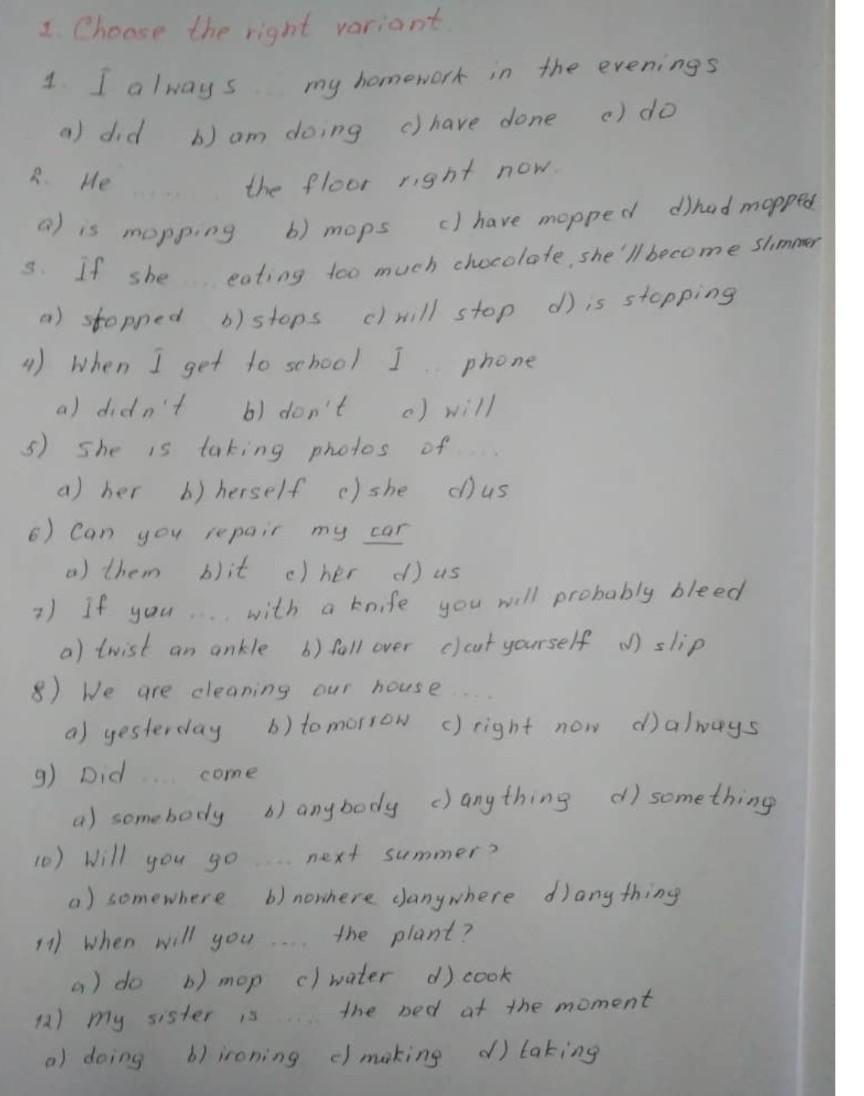 1. Choose the right variant.
1. I always ... my homework in the evenings
a) did b) am doing c) have done e) do
2. He ....... the floor right now.
a) is mopping b) mops c) have mopped d) had mopped
3. If she .... eating too much chocolate, she'll become slimmer
a) stopped b) stops c) will stop d) is stopping
4) When I get to school I .. phone
a) didn't b) don't c) will
5) She is taking photos of ....
a) her b) herself c) she d) us
6) Can you repair my car
a) them b) it c) her d) us
7) If you .... with a knife you will probably bleed
a) twist an ankle b) fall over c) cut yourself d) slip
8) We are cleaning our house ....
a) yesterday b) tomorrow c) right now d) always
9) Did .... come
a) somebody b) anybody c) anything d) something
10) Will you go .... next summer?
a) somewhere b) nowhere c) anywhere d) anything
11) When will you .... the plant?
a) do b) mop c) water d) cook
12) My sister is ..... the bed at the moment
a) doing b) ironing c) making d) taking